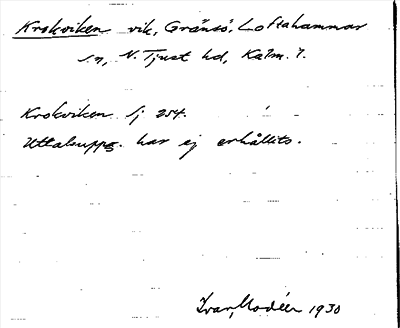 Krokviken vik, Gränsö, Loftahammar
sn, N. Tjust hd, Kalm. l.
Krokviken Sj 254.
Uttalsuppg. har ej erhållits.
Ivar Modéer 1930